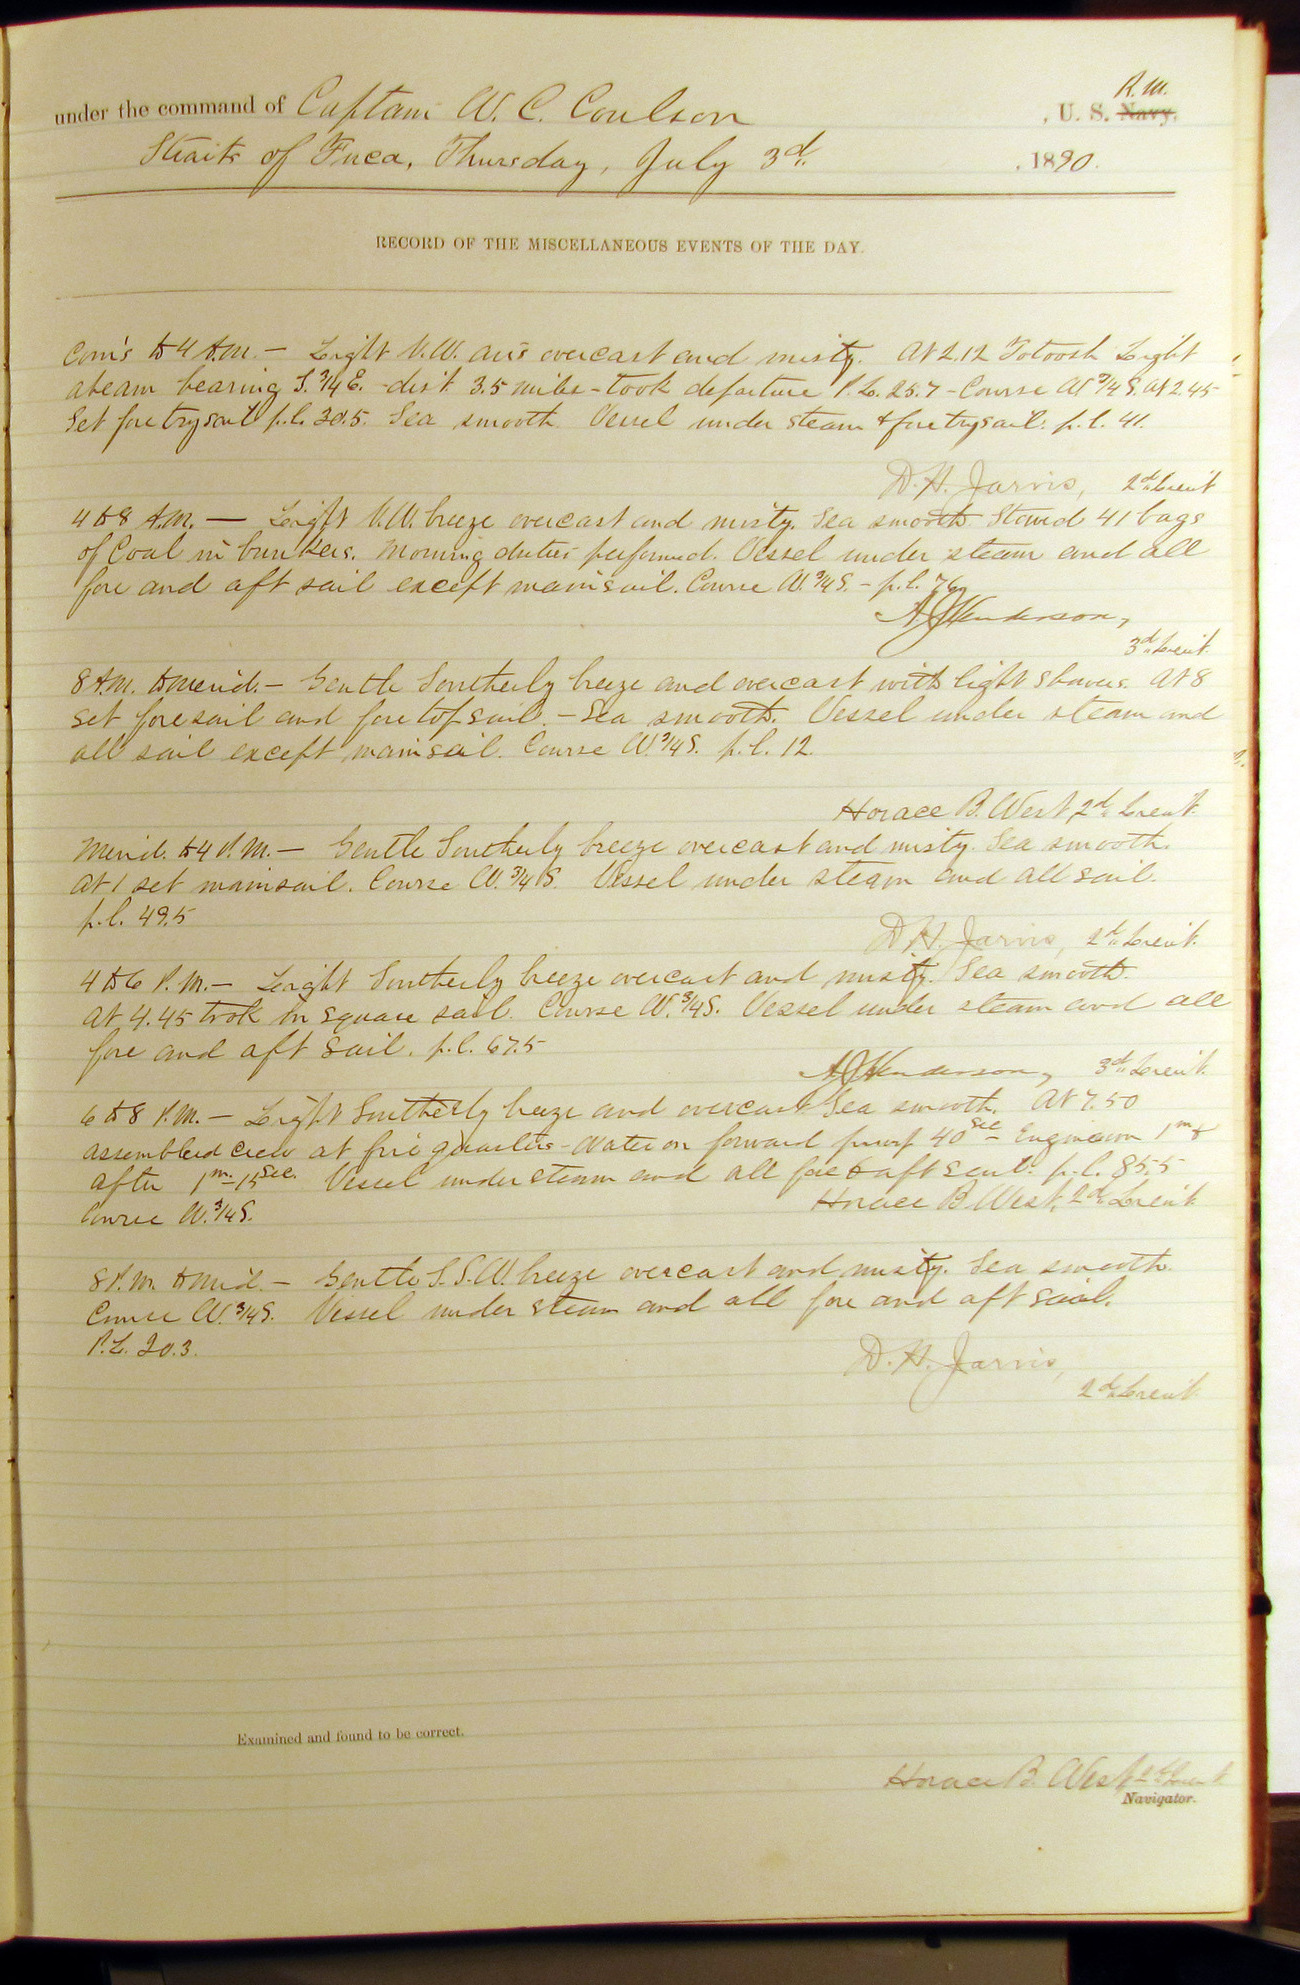 R. M.
under the command of Captain W. C. Coulson , U. S. Navy.
Straits of Fuca, Thursday, July 3d. , 1890.
RECORD OF THE MISCELLANEOUS EVENTS OF THE DAY.
Com's to 4 A.M. — Light N.W. airs overcast and misty. At 2.12 Totoosh Light
abeam bearing S. 3/4 E. - dis't 3.5 miles - took departure P.L. 25.7 - Course W 3/4 S. At 2.45
Set fore trysail p.l. 30.5. Sea smooth. Vessel under steam & fore trysail. p.l. 41.
D. H. Jarvis, 2d Lieut
4 to 8 A.M. — Light N.W. breeze overcast and misty. Sea smooth Stowed 41 bags
of Coal in bunkers. Morning duties performed. Vessel under steam and all
fore and aft sail except mainsail. Course W. 3/4 S. - p.l. 76
A J Henderson,
3d Lieut.
8 A.M. to merid. — Gentle Southerly breeze and overcast with light showers. At 8
set foresail and foretopsail. — Sea smooth. Vessel under steam and
all sail except mainsail. Course W. 3/4 S. p.l. 12.
Horace B. West 2d Lieut.
Merid. to 4 P.M. — Gentle Southerly breeze overcast and misty. Sea smooth.
At 1 set mainsail. Course W. 3/4 S. Vessel under steam and all sail.
p.l. 49.5
D. H. Jarvis, 2d Lieut.
4 to 6 P.M. — Light Southerly breeze overcast and misty. Sea smooth.
At 4.45 took in square sail. Course W. 3/4 S. Vessel under steam and all
fore and aft sail. p.l. 67.5
A J Henderson, 3d Lieut.
6 to 8 P.M. — Light Southerly breeze and overcast Sea smooth. At 7.50
assembled crew at fire quarters - Water on forward pump 40 sec - Engineroom 1m &
after 1m 15 sec. Vessel under steam and all fore & aft sail. p.l. 85.5
Course W. 3/4 S. Horace B West, 2d Lieut
8 P.M. to Mid. — Gentle S.S.W. breeze overcast and misty. Sea smooth.
Course W. 3/4 S. Vessel under steam and all fore and aft sail.
P.L. 20.3.
D. H. Jarvis,
2d Lieut.
Examined and found to be correct.
Horace B. West, 2d Lieut
Navigator.